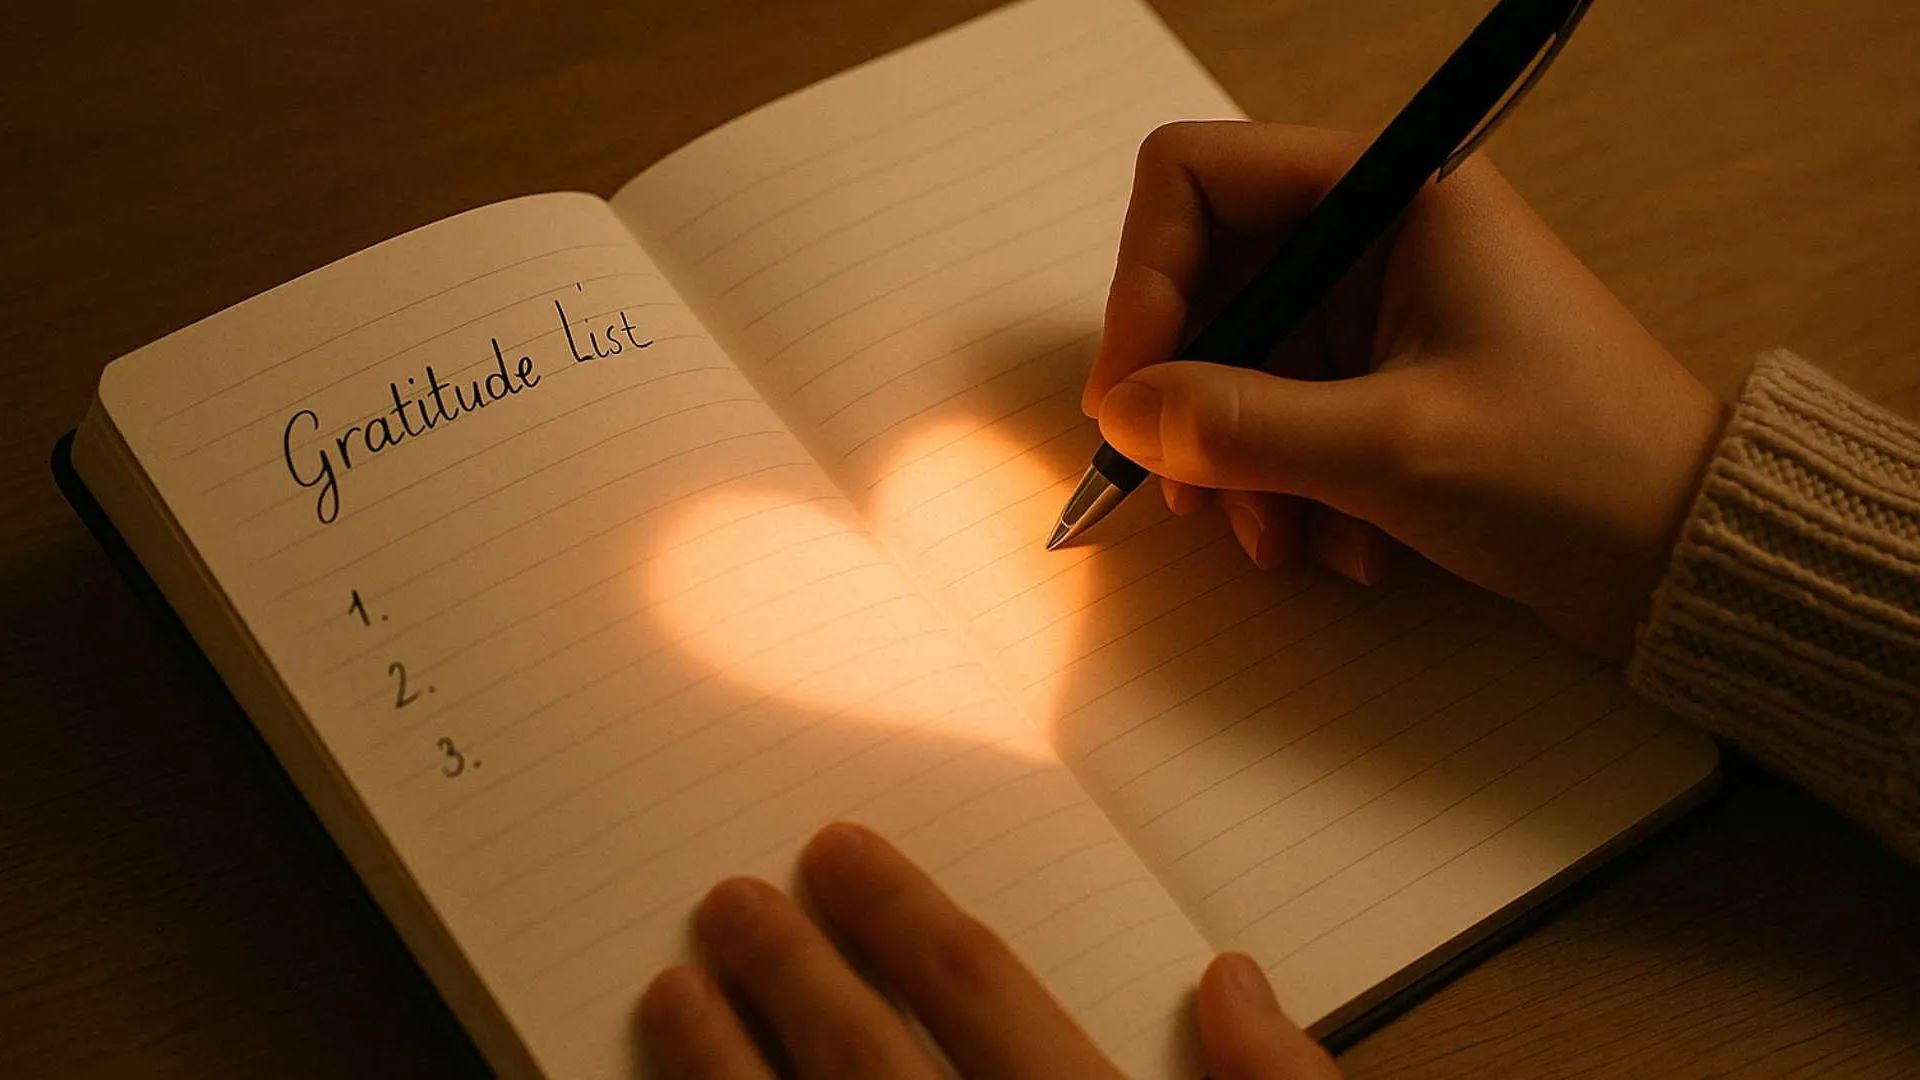 Gratitude List
1.
2.
3.